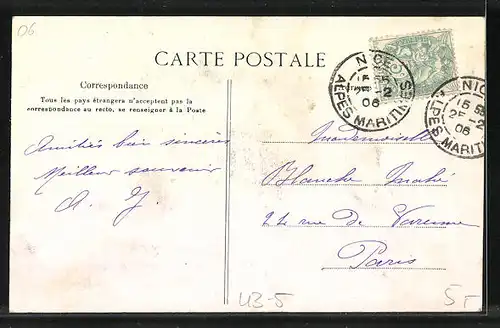 06
CARTE POSTALE
Correspondance
Tous les pays étrangers n'acceptent pas la
correspondance au recto, se renseigner à la Poste
NICE
15 55
25-2
06
ALPES MARITIMES
NICE
15 55
25-2
06
ALPES MARITIMES
Amitiés bien sincères
Meilleur souvenir
A. J.
Mademoiselle
Blanche
22 rue de Varenne
Paris
UB-5
5-